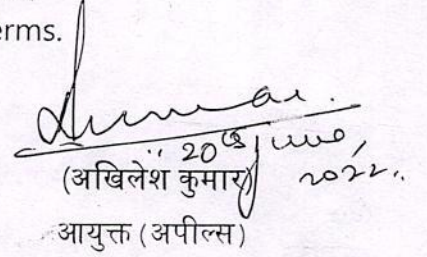 erms.
20th June,
2022..
(अखिलेश कुमार)
आयुक्त (अपील्स)